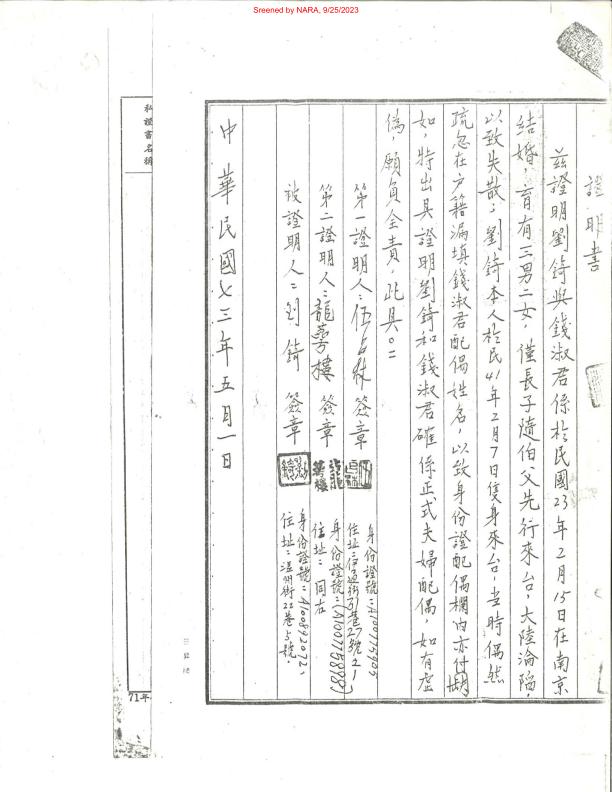 Sreened by NARA, 9/25/2023
證明書
茲證明劉錡與錢淑君係於民國23年2月15日在南京
結婚，育有三男二女，僅長子隨伯父先行來台，大陸淪陷，
以致失散，劉錡本人於民41年2月7日隻身來台，當時偶然
疏忽在戶籍漏填錢淑君配偶姓名，以致身份證配偶欄內亦付闕
如，特出具證明劉錡和錢淑君確係正式夫婦配偶，如有虛
偽，願負全責，此具。
第一證明人：伍 簽章
身份證號：
住址：
第二證明人：龍蕚樓 簽章
身份證號：(A100775898)
住址：同右
被證明人：劉錡 簽章
身份證號：A100892072，
住址：溫州街22巷5號．
中華民國七三年五月一日
私證書名稱
71年